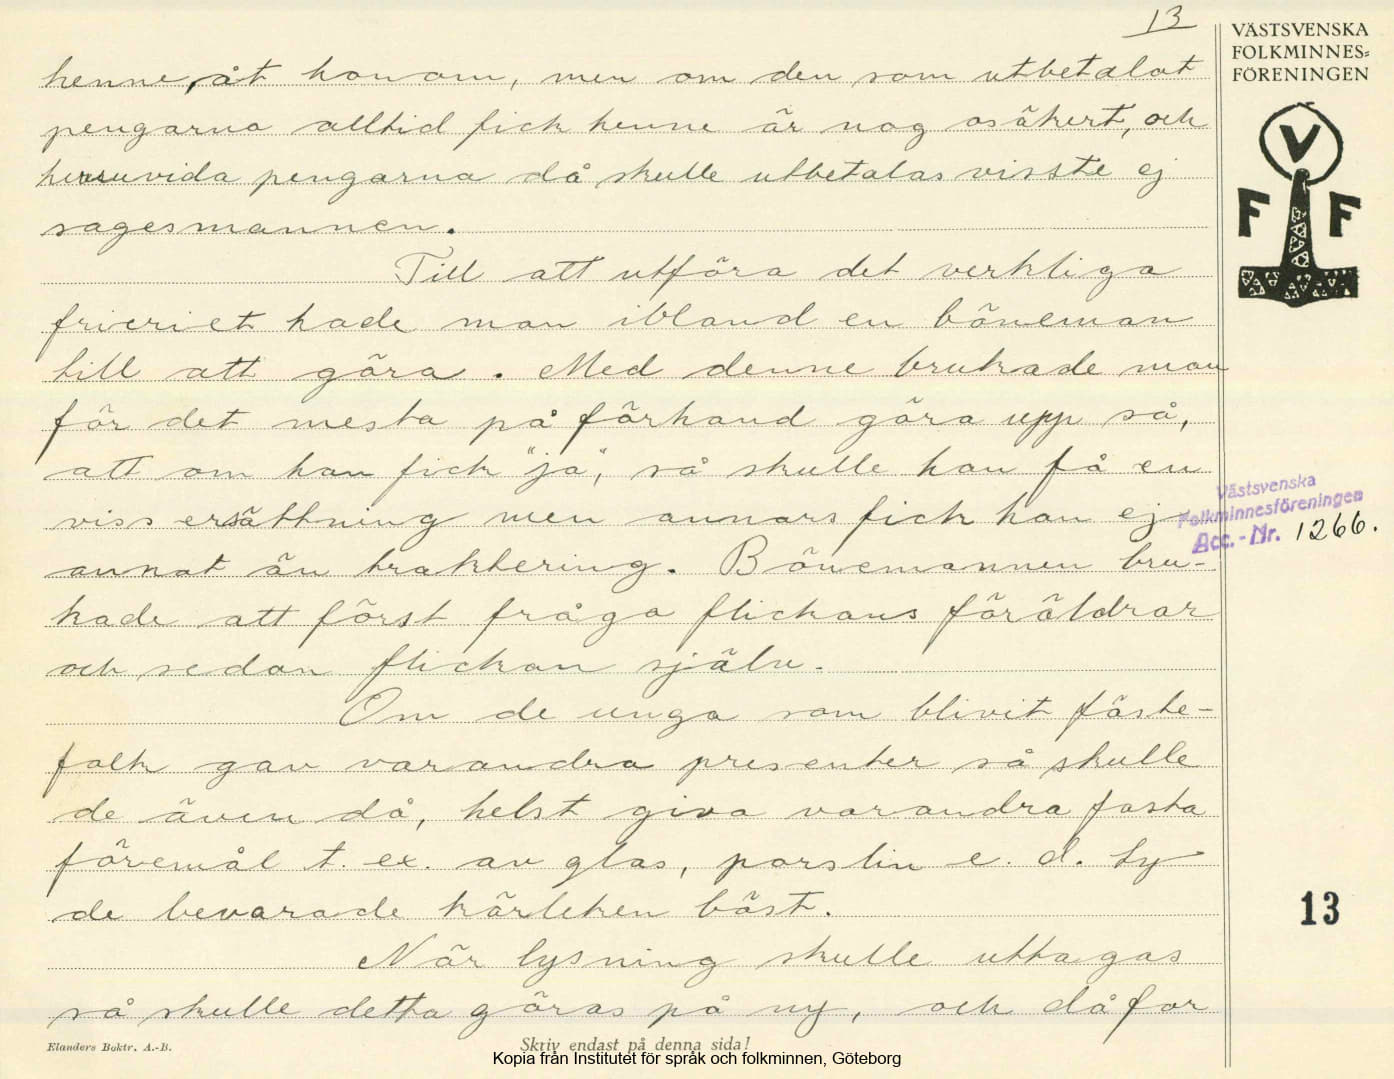 13
VÄSTSVENSKA
FOLKMINNES=
FÖRENINGEN
V
F F
henne, åt honom, men om den som utbetalat
pengarna alltid fick henne är nog osäkert, och
huruvida pengarna då skulle utbetalas visste ej
sagesmannen.
Till att utföra det verkliga
frieriet hade man ibland en böneman
till att göra. Med denne brukade man
för det mesta på förhand göra upp så,
att om han fick "ja", så skulle han få en
viss ersättning men annars fick han ej
annat än traktering. Bönemannen bru-
kade att först fråga flickans föräldrar
och sedan flickan själv.
Om de unga som blivit fäste-
folk gav varandra presenter så skulle
de även då, helst giva varandra fasta
föremål t. ex. av glas, porslin e. d. ty
de bevarade kärleken bäst.
När lysning skulle uttagas
så skulle detta göras på ny, och då for
Västsvenska
Folkminnesföreningen
Acc.-Nr. 1266.
13
Elanders Boktr. A.-B.
Skriv endast på denna sida!
Kopia från Institutet för språk och folkminnen, Göteborg